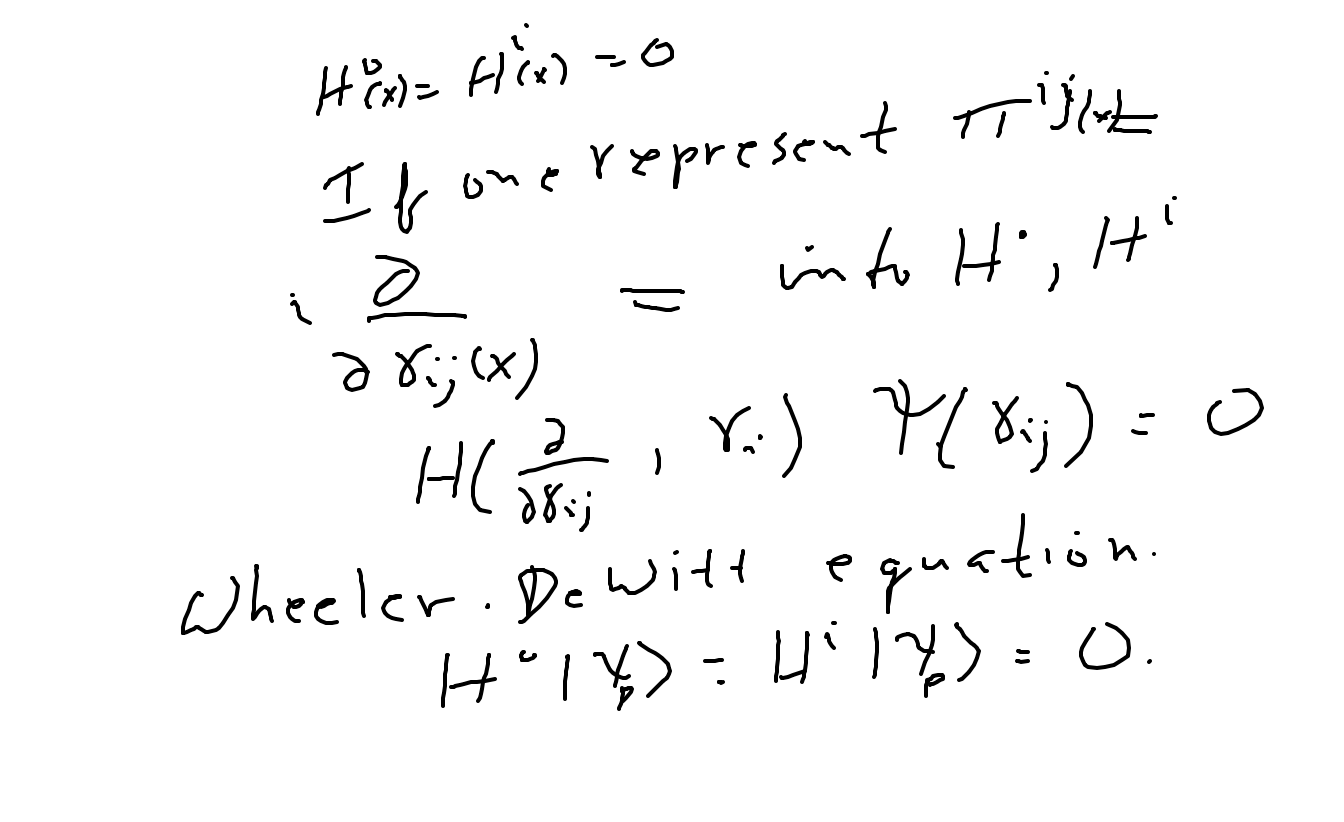 H⁰(x) = Hⁱ(x) = 0
If one represent πⁱʲ(x) =
i ∂/∂γᵢⱼ(x) = into H⁰, Hⁱ
H(∂/∂γᵢⱼ, γᵢ) Ψ(γᵢⱼ) = 0
Wheeler. DeWitt equation.
H⁰|ψₚ> = Hⁱ|ψₚ> = 0.